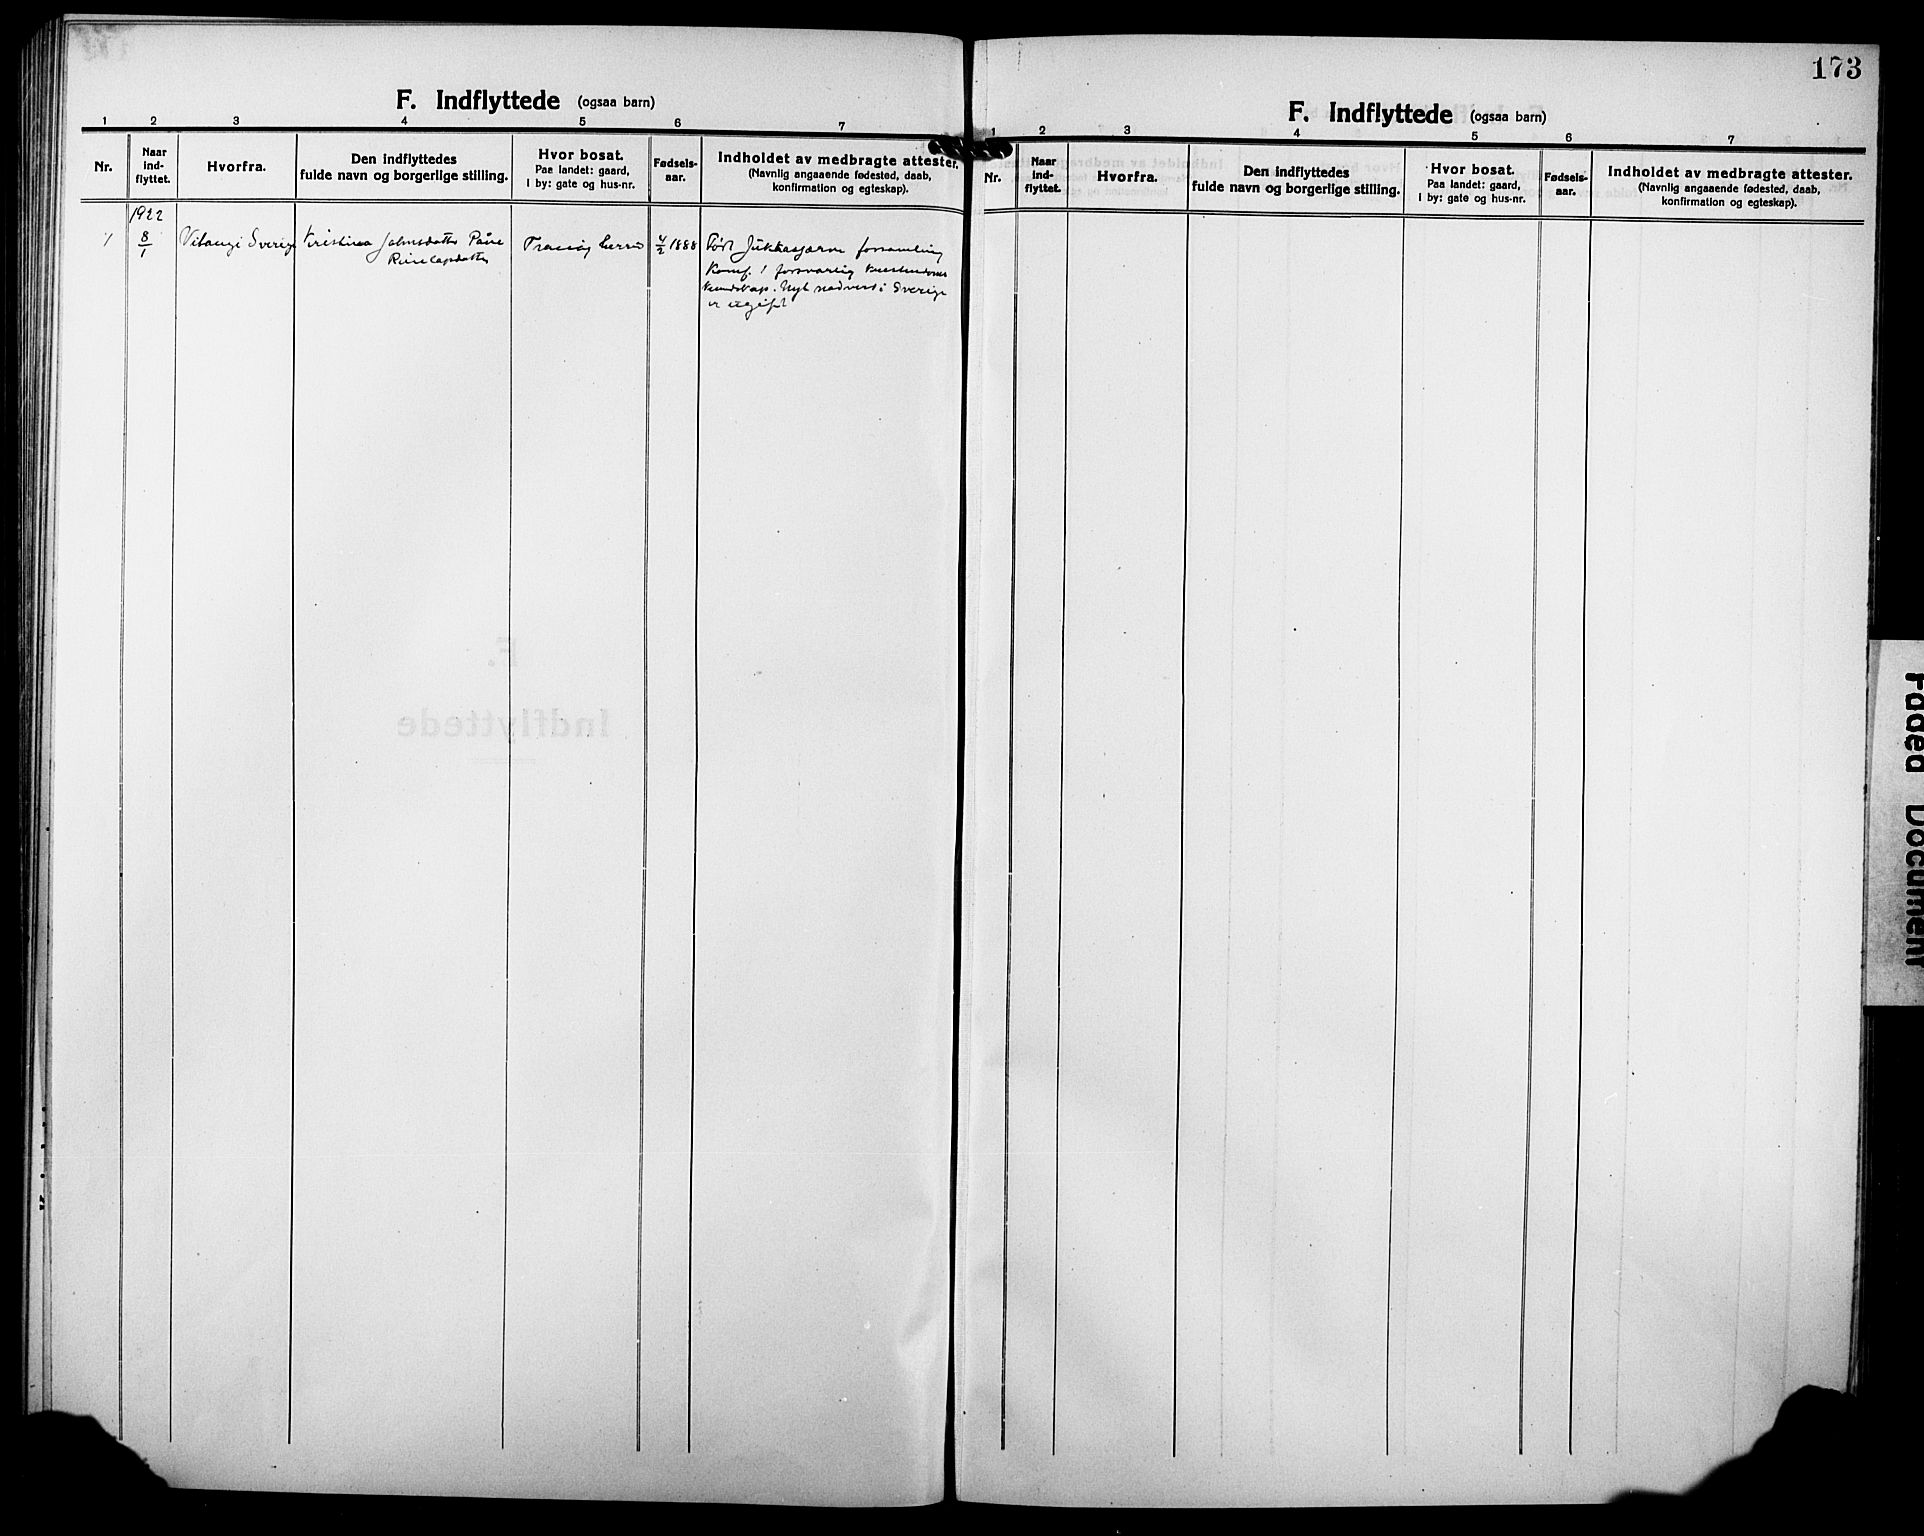 173
F. Indflyttede (ogsaa barn)
1 2 3 4 5 6 7
Nr.
Naar
ind-
flyttet.
Hvorfra.
Den indflyttedes
fulde navn og borgerlige stilling.
Hvor bosat.
Paa landet: gaard,
I by: gate og hus-nr.
Fødsels-
aar.
Indholdet av medbragte attester.
(Navnlig angaaende fødested, daab,
konfirmation og egteskap).
1922
1 8/1 Vitangi Sverige Kristina Johnsdatter 4/2 1888 Født Jukkasjærvi forsamling
Konf. forsvarlig
kundskap. Nyt nadverd i Sverige
er ugift
F. Indflyttede (ogsaa barn)
1 2 3 4 5 6 7
Nr.
Naar
ind-
flyttet.
Hvorfra.
Den indflyttedes
fulde navn og borgerlige stilling.
Hvor bosat.
Paa landet: gaard,
I by: gate og hus-nr.
Fødsels-
aar.
Indholdet av medbragte attester.
(Navnlig angaaende fødested, daab,
konfirmation og egteskap).
F.
Indflyttede
Faded Document